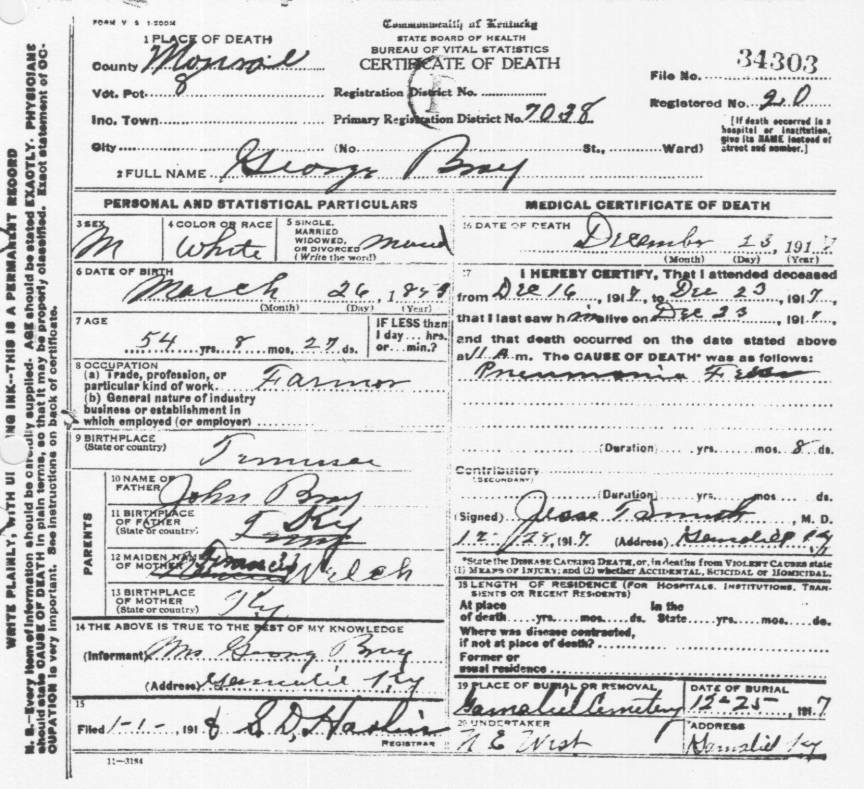 FORM V S 1-200M
Commonwealth of Kentucky
STATE BOARD OF HEALTH
BUREAU OF VITAL STATISTICS
CERTIFICATE OF DEATH
34303
File No.
Registered No. 20
[If death occurred in a hospital or institution, give its NAME instead of street and number.]
1 PLACE OF DEATH
County Monroe
Vot. Pct. 8
Inc. Town
City
Registration District No.
Primary Registration District No. 7038
(No. St., Ward)
2 FULL NAME George Bray
PERSONAL AND STATISTICAL PARTICULARS
3 SEX
M
4 COLOR OR RACE
White
5 SINGLE,
MARRIED
WIDOWED,
OR DIVORCED
(Write the word)
6 DATE OF BIRTH
March 26, 18
(Month) (Day) (Year)
7 AGE
54 yrs. 8 mos. 27 ds.
IF LESS than
1 day... hrs.
or... min.?
8 OCCUPATION
(a) Trade, profession, or
particular kind of work. Farmer
(b) General nature of industry
business or establishment in
which employed (or employer)
9 BIRTHPLACE
(State or country)
Tennessee
PARENTS
10 NAME OF
FATHER
John Bray
11 BIRTHPLACE
OF FATHER
(State or country)
Ky
12 MAIDEN NAME
OF MOTHER
Welch
13 BIRTHPLACE
OF MOTHER
(State or country)
Ky
14 THE ABOVE IS TRUE TO THE BEST OF MY KNOWLEDGE
(Informant) Mrs George Bray
(Address) Gamaliel Ky
15
Filed 1-1-, 1918 S. D.
REGISTRAR
11—3184
MEDICAL CERTIFICATE OF DEATH
16 DATE OF DEATH
December 23, 1917
(Month) (Day) (Year)
17
I HEREBY CERTIFY, That I attended deceased
from Dec 16, 1917, to Dec 23, 1917,
that I last saw him alive on Dec 23, 191
and that death occurred on the date stated above
at 11 A m. The CAUSE OF DEATH* was as follows:
Pneumonia
(Duration) yrs. mos. 8 ds.
Contributory
(SECONDARY)
(Duration) yrs. mos ds.
(Signed) Jesse T Smith, M. D.
12/28, 1917 (Address) Gamaliel Ky
*State the DISEASE CAUSING DEATH, or, in deaths from VIOLENT CAUSES state
(1) MEANS OF INJURY; and (2) whether ACCIDENTAL, SUICIDAL OR HOMICIDAL.
18 LENGTH OF RESIDENCE (FOR HOSPITALS, INSTITUTIONS, TRAN-
SIENTS OR RECENT RESIDENTS)
At place In the
of death yrs. mos. ds. State yrs. mos. ds.
Where was disease contracted,
if not at place of death?
Former or
usual residence
19 PLACE OF BURIAL OR REMOVAL
Gamaliel Cemetery
DATE OF BURIAL
12-25-, 1917
20 UNDERTAKER
N E West
ADDRESS
Gamaliel Ky
WRITE PLAINLY, WITH ING INK—THIS IS A PERMANENT RECORD
N. B.—Every item of information should be carefully supplied. AGE should be stated EXACTLY. PHYSICIANS
should state CAUSE OF DEATH in plain terms, so that it may be properly classified. Exact statement of OC-
CUPATION is very important. See instructions on back of certificate.